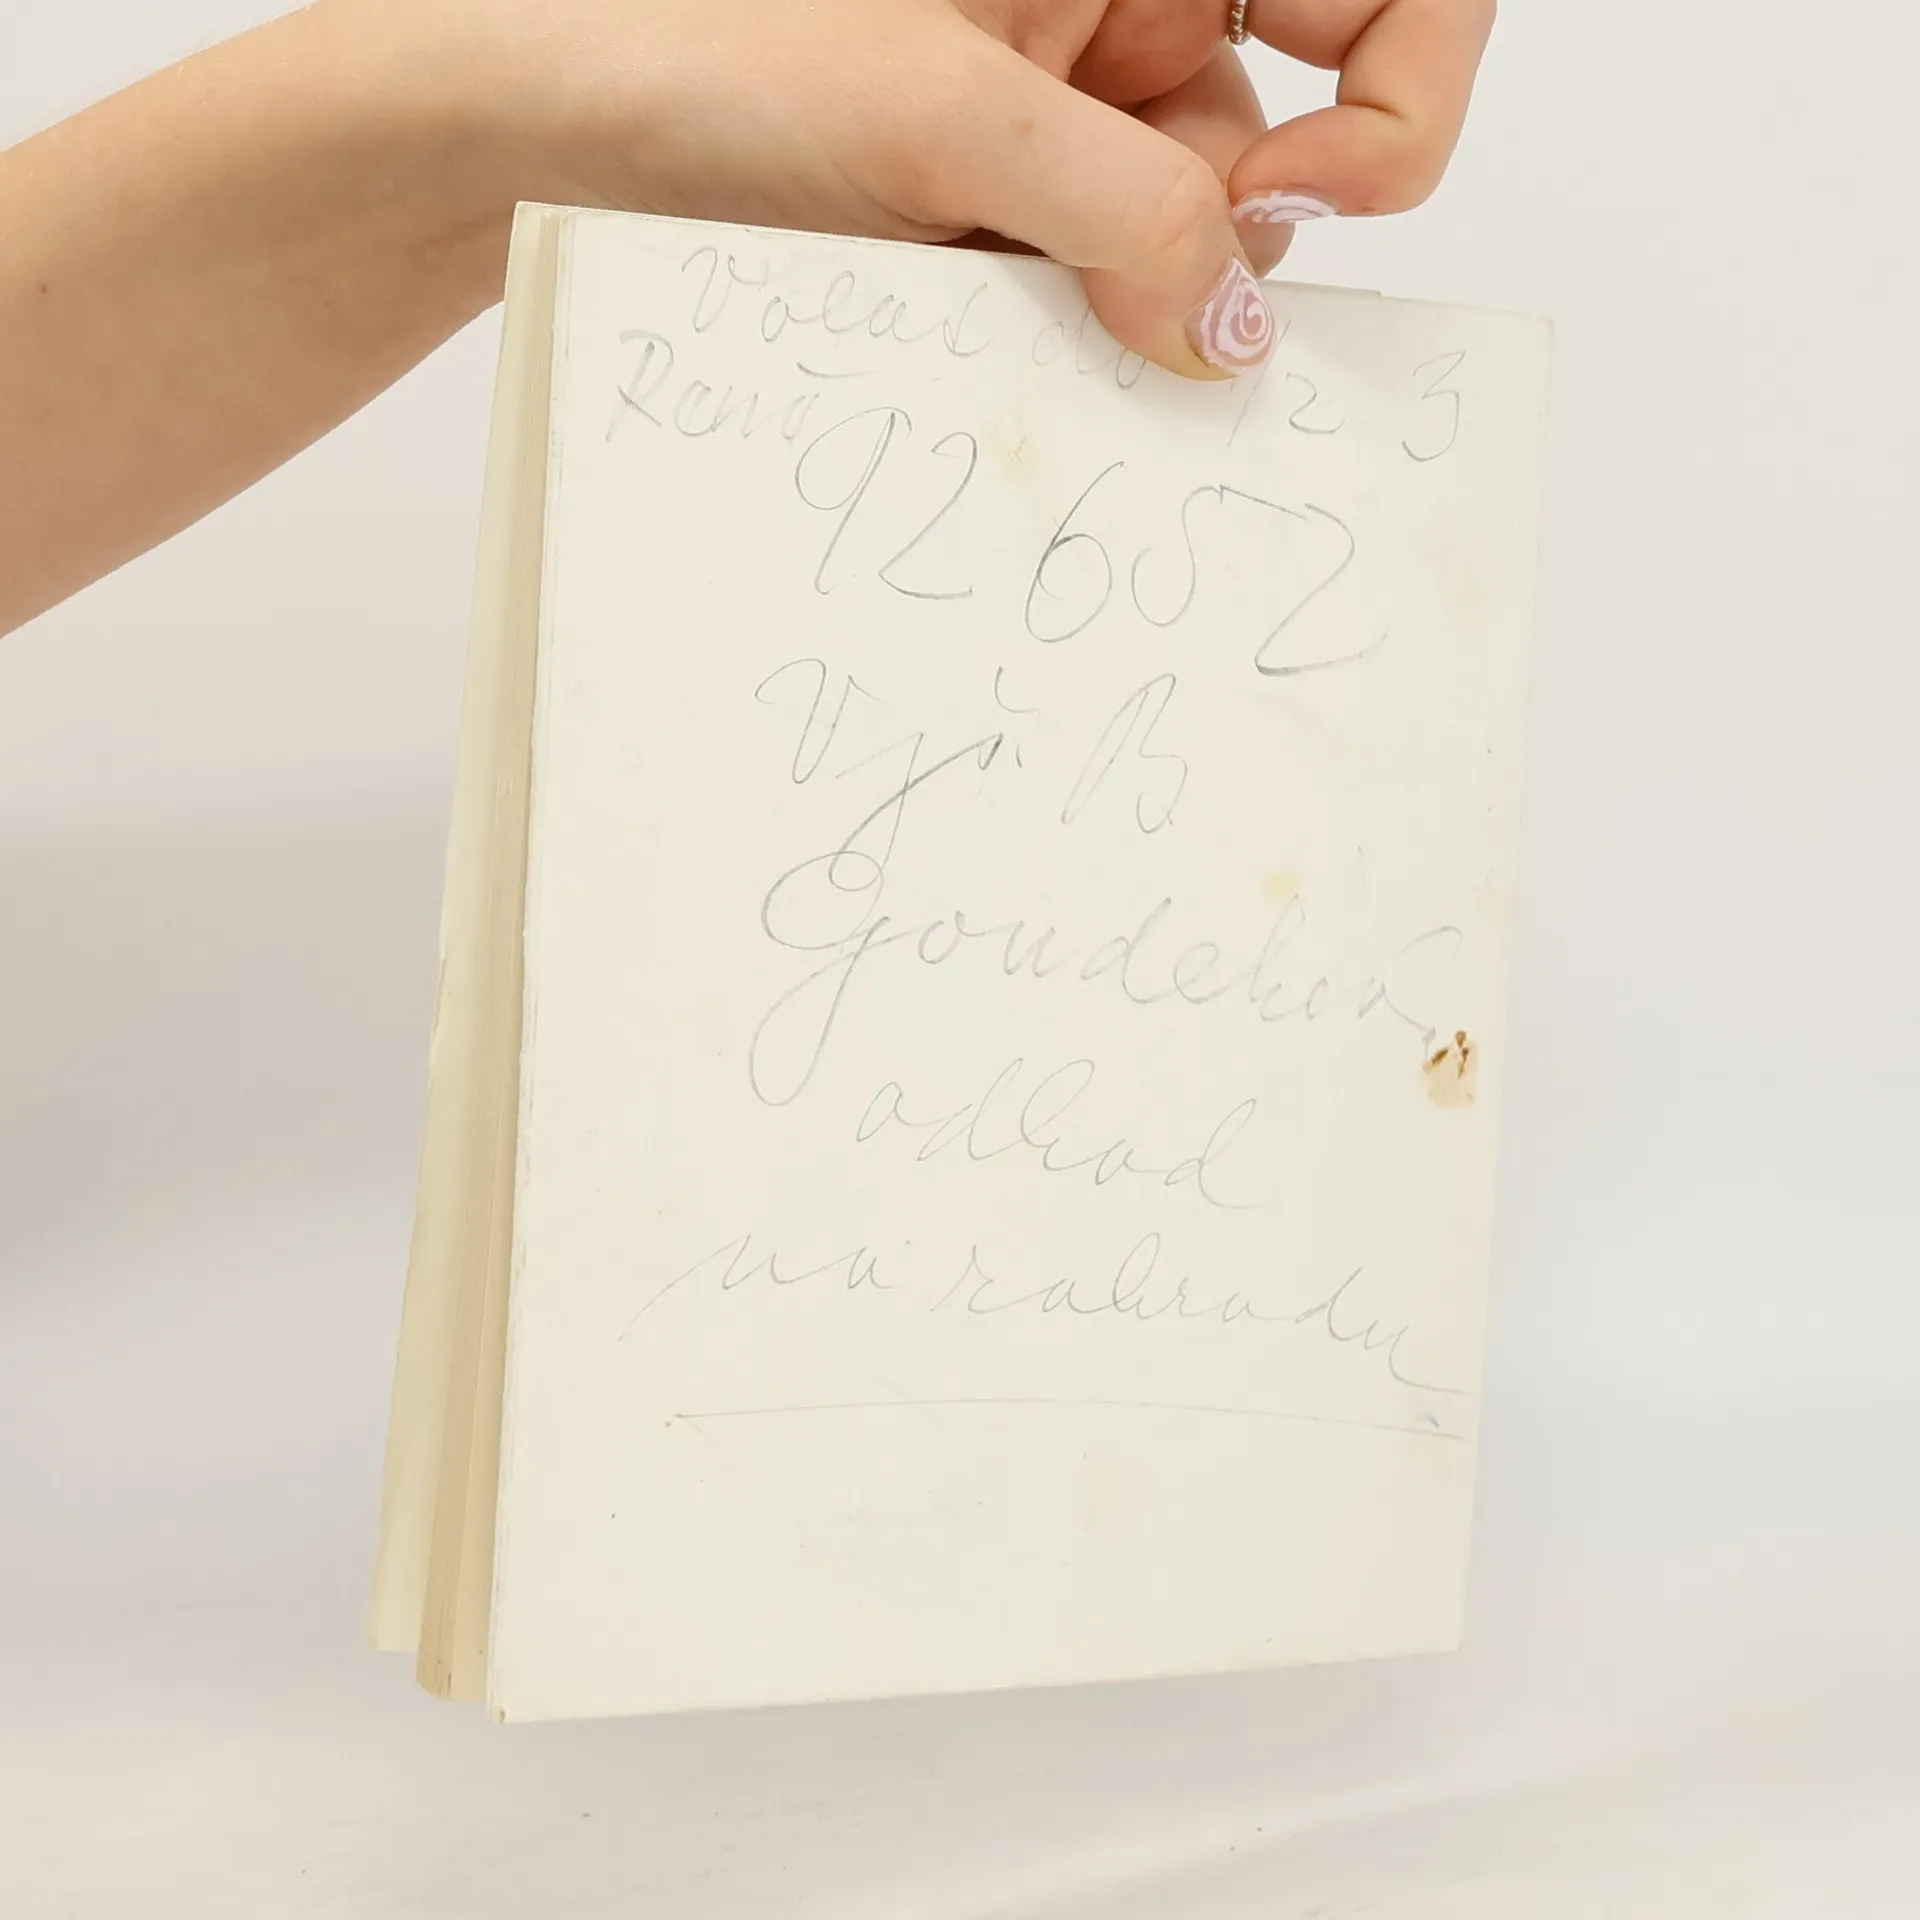 Volat do 1/2 3
Rană
92652
Vjă B
Goudelov
odhad
na zahradu